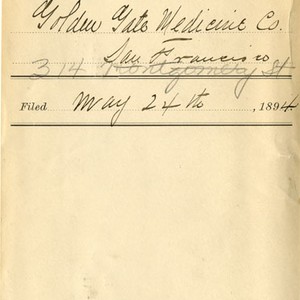 Golden Gate Medicine Co.
San Francisco
314 Montgomery St
Filed May 24th, 1894.